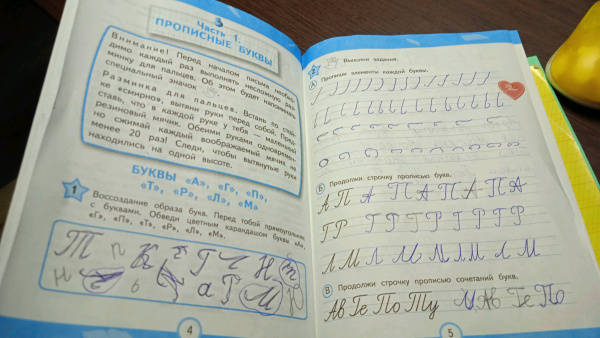 Часть 1.
ПРОПИСНЫЕ БУКВЫ
Внимание! Перед началом письма необхо-
димо каждый раз выполнять несложную раз-
минку для пальцев. Об этом будет напоминать
специальный значок
Разминка для пальцев. Встань по стой-
ке «смирно», вытяни руки перед собой. Пред-
ставь, что в каждой руке у тебя — маленький
резиновый мячик. Обеими руками одновремен-
но сжимай каждый воображаемый мячик не
менее 20 раз! Следи, чтобы вытянутые руки
находились на одной высоте.
БУКВЫ «А», «Г», «П»,
«Т», «Р», «Л», «М»
1
Воссоздание образа букв. Перед тобой прямоугольник
с буквами. Обведи цветным карандашом буквы «А»,
«Г», «П», «Т», «Р», «Л», «М».
Т п К Г Ч Н т
н ь а Р М
4
2
Выполни задания.
А Пропиши элементы каждой буквы.
Б Продолжи строчку прописью букв.
А П А П А П А П А
Г Р Г Р Г Р Г Р Г Р
Л М Л М Л М Л М
В Продолжи строчку прописью сочетаний букв.
Ав Ге По Ту Ав Ге По
5